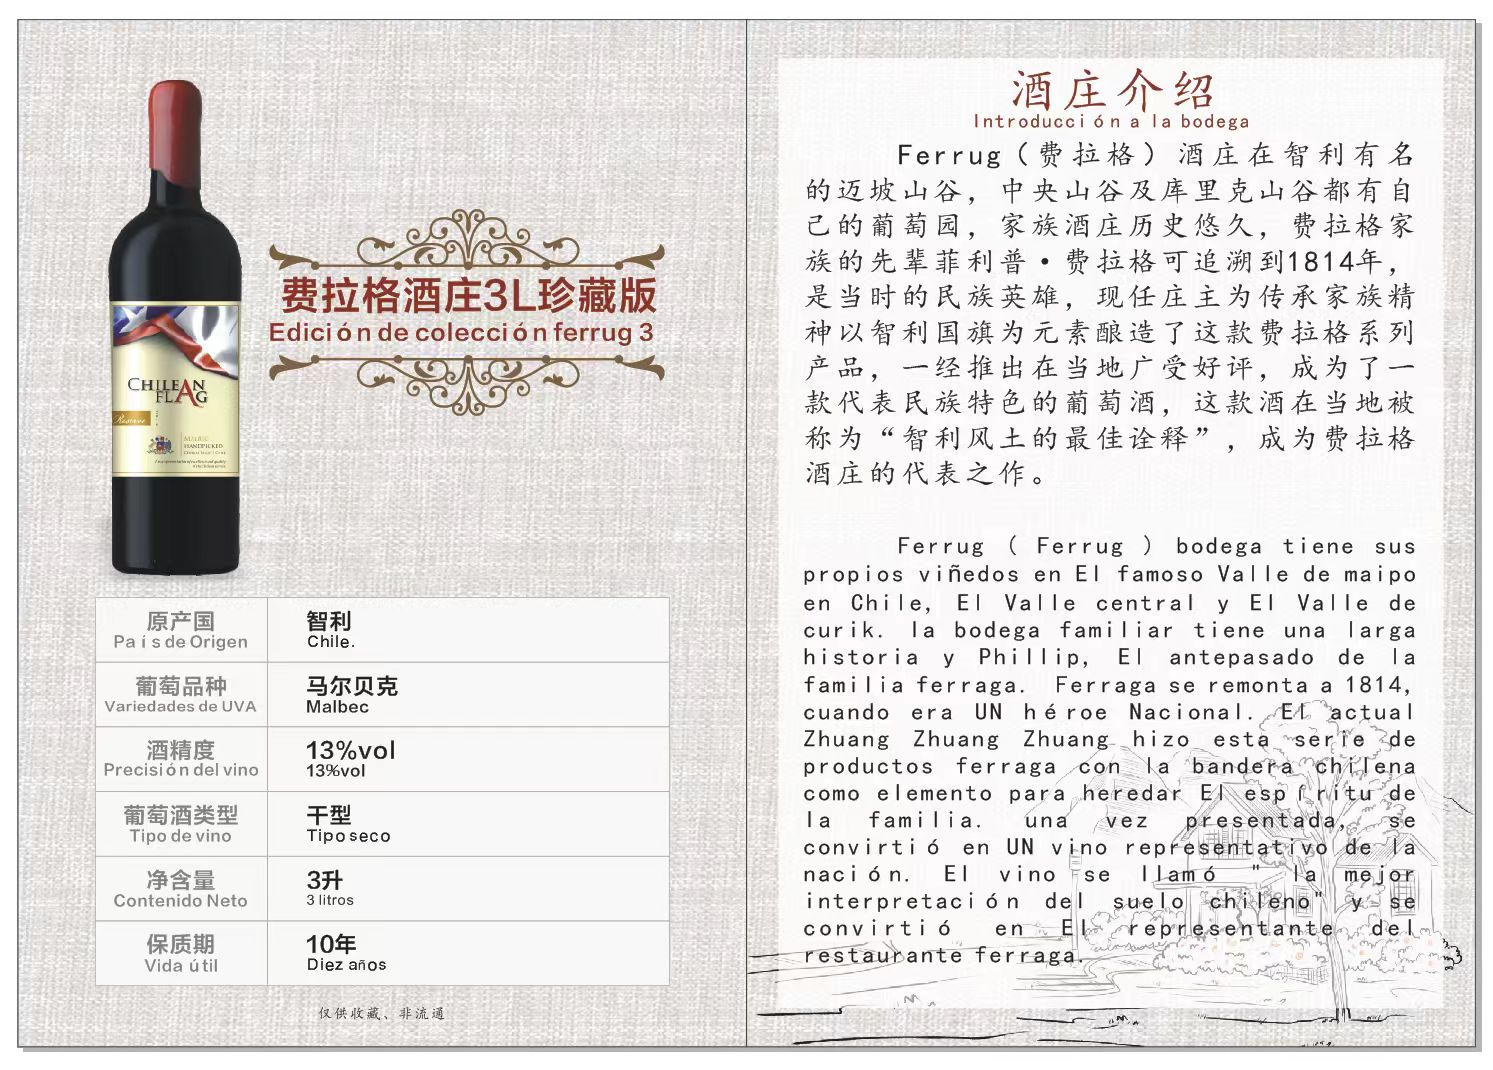 费拉格酒庄3L珍藏版
Edición de colección ferrug 3
CHILEAN
FLAG
Reserve
MALBEC
HANDPICKED
原产国
País de Origen
智利
Chile.
葡萄品种
Variedades de UVA
马尔贝克
Malbec
酒精度
Precisión del vino
13%vol
13%vol
葡萄酒类型
Tipo de vino
干型
Tipo seco
净含量
Contenido Neto
3升
3 litros
保质期
Vida útil
10年
Diez años
仅供收藏、非流通
酒庄介绍
Introducción a la bodega
Ferrug（费拉格）酒庄在智利有名
的迈坡山谷，中央山谷及库里克山谷都有自
己的葡萄园，家族酒庄历史悠久，费拉格家
族的先辈菲利普·费拉格可追溯到1814年，
是当时的民族英雄，现任庄主为传承家族精
神以智利国旗为元素酿造了这款费拉格系列
产品，一经推出在当地广受好评，成为了一
款代表民族特色的葡萄酒，这款酒在当地被
称为“智利风土的最佳诠释”，成为费拉格
酒庄的代表之作。
Ferrug ( Ferrug ) bodega tiene sus
propios viñedos en El famoso Valle de maipo
en Chile, El Valle central y El Valle de
curik. la bodega familiar tiene una larga
historia y Phillip, El antepasado de la
familia ferraga. Ferraga se remonta a 1814,
cuando era UN héroe Nacional. El actual
Zhuang Zhuang Zhuang hizo esta serie de
productos ferraga con la bandera chilena
como elemento para heredar El espíritu de
la familia. una vez presentada, se
convirtió en UN vino representativo de la
nación. El vino se llamó " la mejor
interpretación del suelo chileno" y se
convirtió en El representante del
restaurante ferraga.